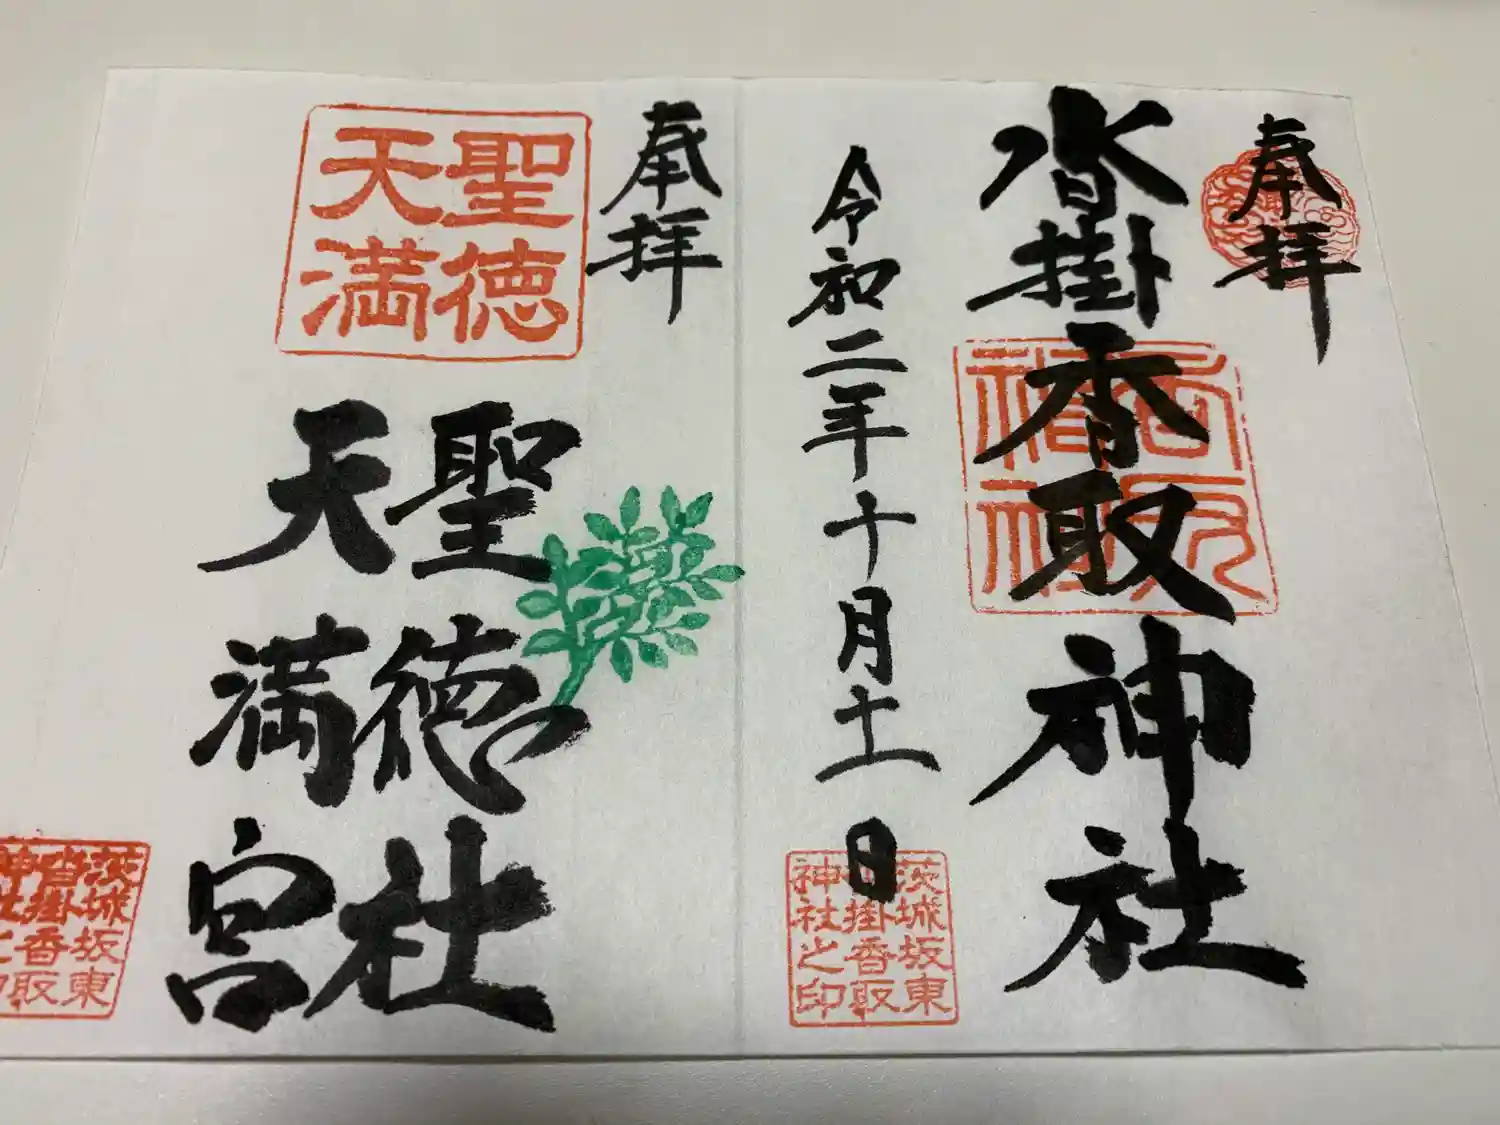 奉拝
沓掛香取神社
香取
神社
令和二年十月十一日
茨城坂東
沓掛香取
神社之印
奉拝
聖徳
天満
聖徳社
天満宮
茨城坂東
沓掛香取
神社之印